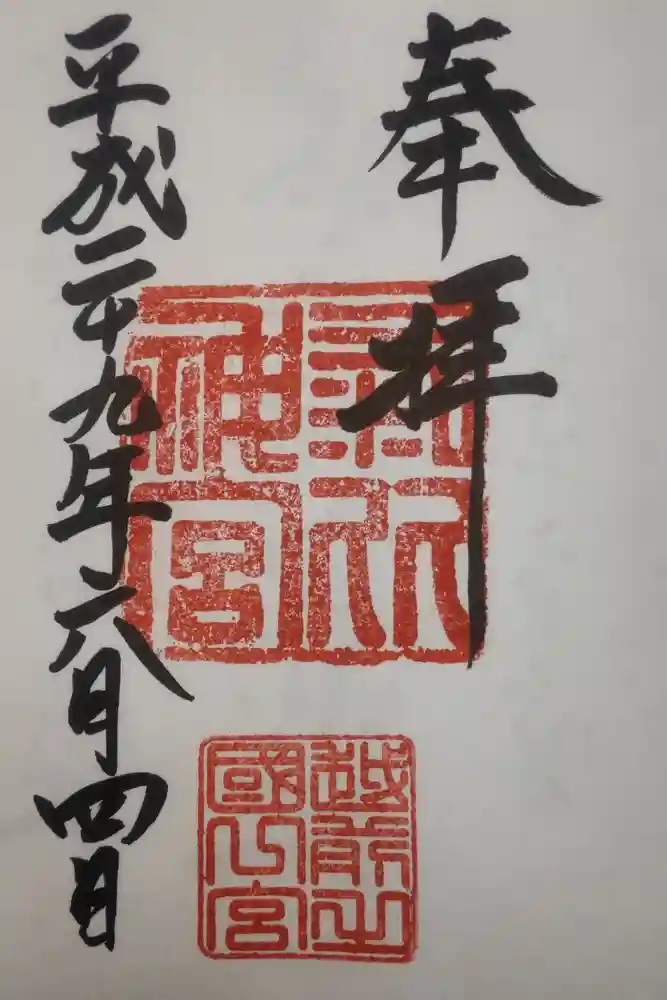 奉拝
氣比
神宮
越前之
國宮
平成二十九年六月四日